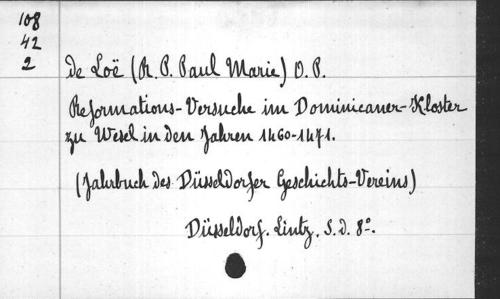 108
42
2
de Loë (R. P. Paul Marie) O. P.
Reformations-Versuche im Dominicaner-Kloster
zu Wesel in den Jahren 1460-1471.
(Jahrbuch des Düsseldorfer Geschichts-Vereins)
Düsseldorf. Lintz. S. d. 8º.